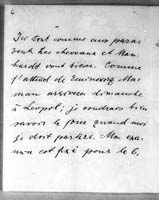 6
Ici tout comme aux paras
vent. Les chevaux et Man-
hardt vont bien. Comme
j'attend de
man arrivera dimanche
à Leopol; je voudrais bien
savoir le jour quand moi
je doit partire. Mon exa-
men est fixé pour le 6.